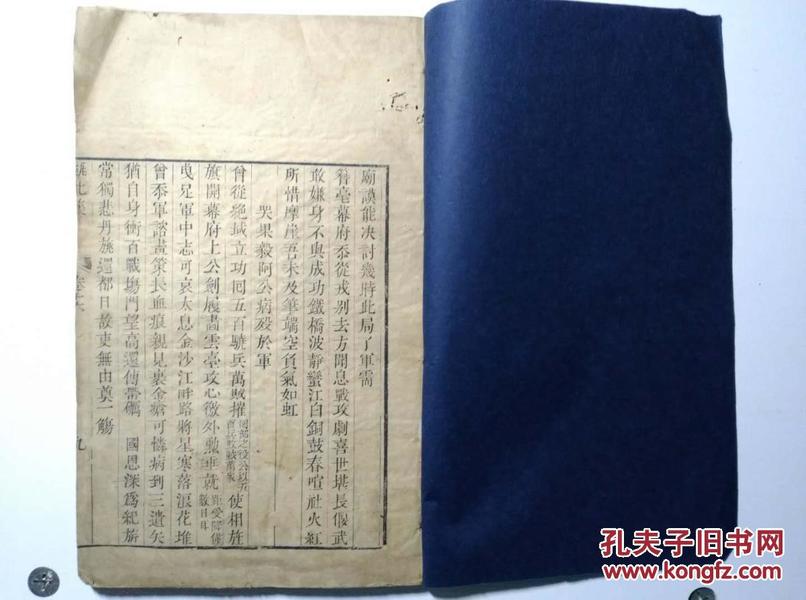 廟謨能决討幾時此局了軍需
脊毫幕府忝從戎别去方聞息戰攻劇喜世堪長偃武
敢嫌身不與成功鐵橋波靜蠻江白銅鼓春喧社火紅
所惜摩崖吾未及筆端空負氣如虹
哭果毅阿公病殁於軍
曾從絶域立功回五百驍兵萬賊摧 使相旌
旗開幕府上公劍履畫雲臺攻心徼外勲垂就
曳足軍中志可哀太息金沙江畔路將星寒落浪花堆
曾忝軍諮畫策長血痕親見裹金瘡可憐病到三遺矢
猶自身衝百戰場門望高還傳帶礪 國恩深爲紀旂
常獨悲丹旐還都日故吏無由奠一觴
九
孔夫子旧书网
www.kongfz.com